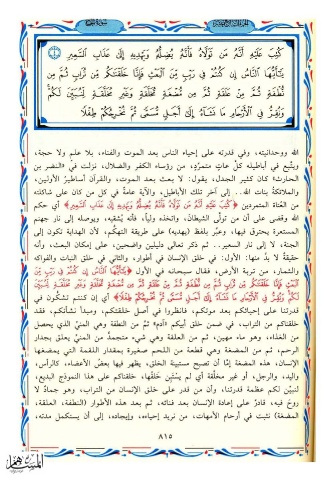 كُتِبَ عَلَيْهِ أَنَّهُ مَن تَوَلَّاهُ فَأَنَّهُ يُضِلُّهُ وَيَهْدِيهِ إِلَىٰ عَذَابِ السَّعِيرِ
يَٰٓأَيُّهَا النَّاسُ إِن كُنتُمْ فِي رَيْبٍ مِّنَ الْبَعْثِ فَإِنَّا خَلَقْنَٰكُم مِّن تُرَابٍ ثُمَّ مِن
نُّطْفَةٍ ثُمَّ مِنْ عَلَقَةٍ ثُمَّ مِن مُّضْغَةٍ مُّخَلَّقَةٍ وَغَيْرِ مُخَلَّقَةٍ لِّنُبَيِّنَ لَكُمْ
وَنُقِرُّ فِي الْأَرْحَامِ مَا نَشَآءُ إِلَىٰٓ أَجَلٍ مُّسَمًّى ثُمَّ نُخْرِجُكُمْ طِفْلًا
الله ووحدانيته، وفي قدرته على إحياء الناس بعد الموت والفناء، بلا علم ولا حجة،
ويتبع في أباطيله كل عاتٍ متمرّد، من رؤساء الكفر والضلال، نزلت في «النضر بن
الحارث» كان كثير الجدل، يقول: لا بعث بعد الموت، والقرآن أساطير الأولين،
والملائكة بنات الله.. إلى آخر تلك الأباطيل، والآية عامة في كل من كان على شاكلته
من العُتاة المتمردين ﴿كُتِبَ عَلَيْهِ أَنَّهُ مَن تَوَلَّاهُ فَأَنَّهُ يُضِلُّهُ وَيَهْدِيهِ إِلَىٰ عَذَابِ السَّعِيرِ﴾ أي حكم
الله وقضى على أن من تولّى الشيطان، واتخذه ولياً، فأنه يُشقيه، ويوصله إلى نار جهنم
المستعرة يحترق فيها، وعبَّر بلفظ (يهديه) على طريقة التهكم، لأن الهداية تكون إلى
الجنة، لا إلى نار السعير.. ثم ذكر تعالى دليلين واضحين، على إمكان البعث، وأنه
حقيقة لا بدَّ منها: الأول: في خلق الإنسان في أطوار، والثاني في خلق النبات والفواكه
والثمار، من تربة الأرض، فقال سبحانه في الأول ﴿يَٰٓأَيُّهَا النَّاسُ إِن كُنتُمْ فِي رَيْبٍ مِّنَ
الْبَعْثِ فَإِنَّا خَلَقْنَٰكُم مِّن تُرَابٍ ثُمَّ مِن نُّطْفَةٍ ثُمَّ مِنْ عَلَقَةٍ ثُمَّ مِن مُّضْغَةٍ مُّخَلَّقَةٍ وَغَيْرِ مُخَلَّقَةٍ لِّنُبَيِّنَ
لَكُمْ وَنُقِرُّ فِي الْأَرْحَامِ مَا نَشَآءُ إِلَىٰٓ أَجَلٍ مُّسَمًّى ثُمَّ نُخْرِجُكُمْ طِفْلًا﴾ أي إن كنتم تشكّون في
قدرتنا على إحيائكم بعد موتكم، فانظروا في أصل خلقتكم، ومبدأ نشأتكم، فقد
خلقناكم من التراب، في ضمن خلق أبيكم «آدم» ثمَّ من النطفة وهي المنيّ الذي يحصل
من الغذاء، وهو ماء مهين، ثم من العلقة وهي شيء متجمد من المنيّ يعلق بجدار
الرحم، ثم من المضغة وهي قطعة من اللحم صغيرة بمقدار اللقمة التي يمضغها
الإنسان، هذه المضغة إمَّا أن تصبح مستبينة الخلق، يظهر فيها بعضُ الأعضاء، كالرأس،
واليد، والرجل، أو غير مخلّقة أي لم يستَبِنْ خَلْقُها، خلقناكم على هذا النموذج البديع،
لنبيّن لكم عظمة قدرتنا، وأن من قدر على خلق الإنسان من التراب، وهو جمادٌ لا
روح فيه، قادرٌ على إعادة الإنسان بعد فنائه، ثم بعد هذه الأطوار (النطفة، العلقة،
المضغة) نثبت في أرحام الأمهات، من نريد إحياءه، وإيجاده، إلى أن يستكمل مدته،
٨١٥